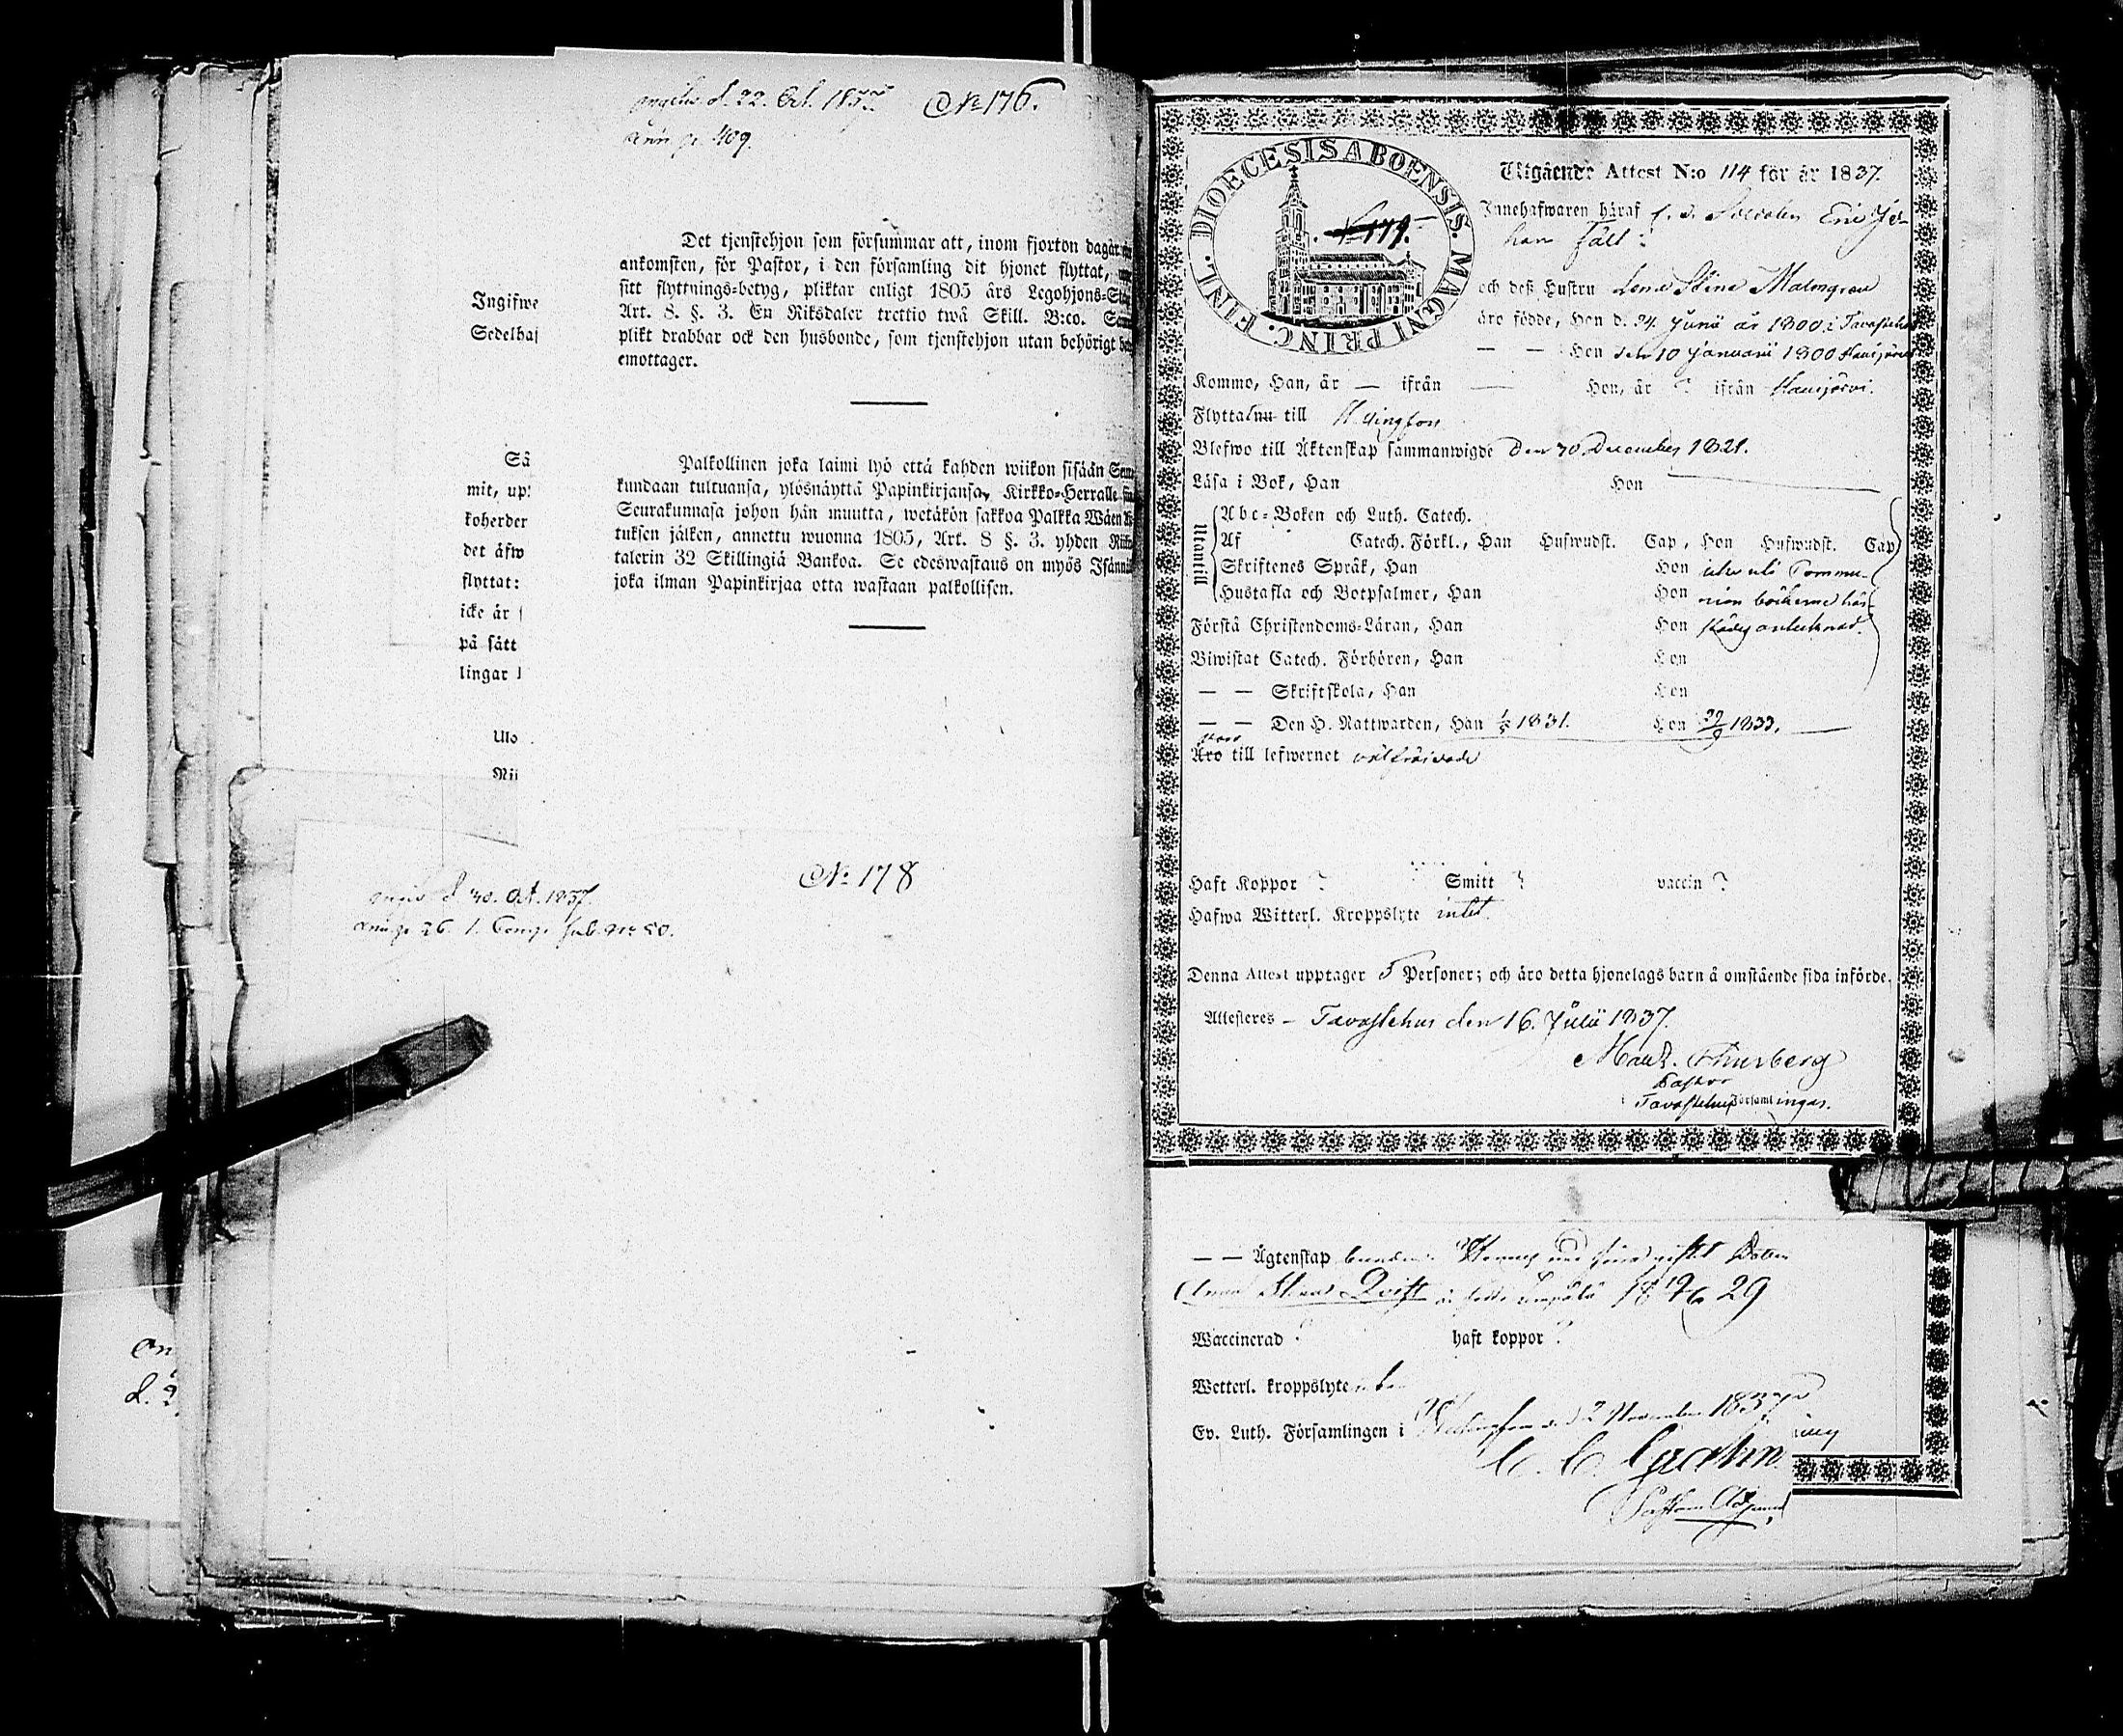 d. 22. Oct. 1837 No 176.
409.
Det tjenstehjon som försummar att, inom fjorton dagar
ankomsten, för Pastor, i den församling dit hjonet flyttat,
sitt flyttnings-betyg, pliktar enligt 1805 års Legohjons-
Art. 8. §. 3. En Riksdaler trettio twå Skill. B:co.
plikt drabbar ock den husbonde, som tjenstehjon utan behörigt
emottager.
Ingifwe
Sedelhaf
Palkollinen joka laimi lyö että kahden wiikon sisään
kundaan tultuansa, ylösnäyttä Papinkirjansa, Kirkko-Herralle
Seurakunnasa johon hän muutta, wetäkön sakkoa Palkka Wäen
tuksen jälken, annettu wuonna 1805, Art. 8 §. 3. yhden
talerin 32 Skillingiä Bankoa. Se edeswastaus on myös
joka ilman Papinkirjaa otta wastaan palkollisen.
Så
mit, up
koherder
det äfw
flyttat:
icke är
på sätt
lingar
Ulo
Nii
No 178
d 30. Oct. 1837.
26. 1.
DIOECESIS ABOENSIS. MAGNI PRINC. FINL.
No 179.
Utgående Attest N:o 114 för år 1837.
Innehafwaren häraf f. d. Soldaten Eric Jo-
han Fält
och deß Hustru Lena Stina Malmgren
äro födde, Han d. 24. Junii år 1800 i Tavastehus
— — Hon den 10 Januarii 1800 Hausjärvi
Kommo, Han, år — ifrån — Hon, år ? ifrån Hausjärvi.
Flytta nu till Helsingfors
Blefwo till Äktenskap sammanwigde Den 30 December 1821.
Läsa i Bok, Han Hon
Utantill
Abc-Boken och Luth. Catech.
Af Catech. Förkl., Han Hufwudst. Cap, Hon Hufwudst. Cap
Skriftenes Språk, Han Hon icke uti Commu-
Hustafla och Botpsalmer, Han Hon nion böckerne här-
Förstå Christendoms-Läran, Han Hon städes antecknad.
Biwistat Catech. Förhören, Han Hon
— — Skriftskola, Han Hon
— — Den H. Nattwarden, Han 1/5 1831. Hon 29/9 1833.
Äro till lefwernet välfräjdade
Haft Koppor ? Smitt ? vaccin ?
Hafwa Witterl. Kroppslyte intet.
Denna Attest upptager 5 Personer; och äro detta hjonelags barn å omstående sida införde.
Attesteres — Tavastehus den 16. Julii 1837.
Maur. Thurberg
Pastor
i Tavastehus Församlingar.
— — Ägtenskap
Anna Stina Qvist 29
Waccinerad ? haft koppor ?
Wetterl. kroppslyte
Ev. Luth. Församlingen i Helsingfors d. 2 November 1837
C. C.
Pastors Adjunct